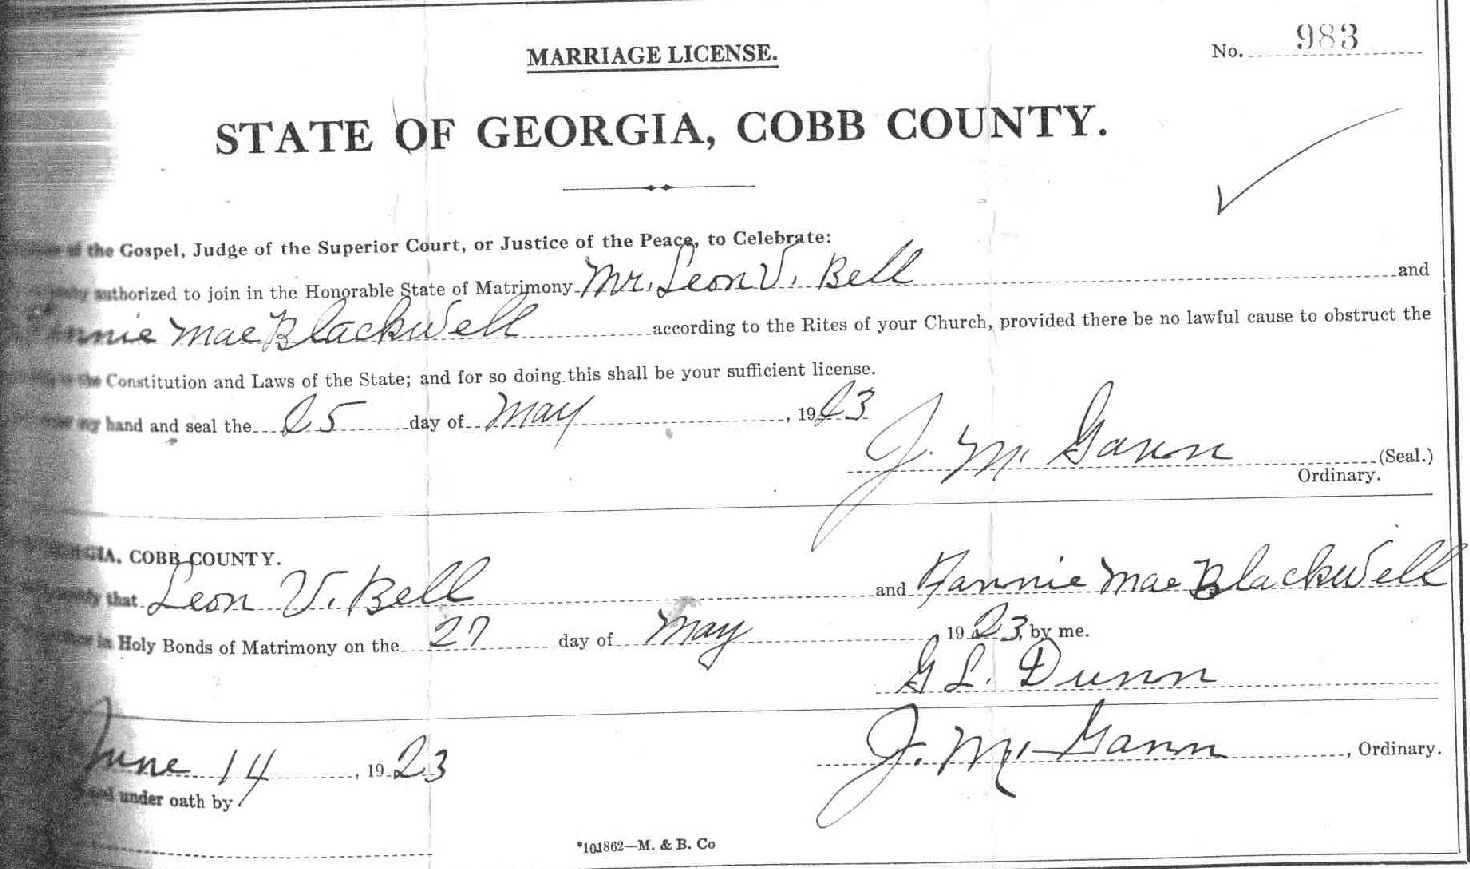 MARRIAGE LICENSE.
No. 983
STATE OF GEORGIA, COBB COUNTY.
of the Gospel, Judge of the Superior Court, or Justice of the Peace, to Celebrate:
authorized to join in the Honorable State of Matrimony Mr. Leon V. Bell and
Mae Blackwell according to the Rites of your Church, provided there be no lawful cause to obstruct the
the Constitution and Laws of the State; and for so doing this shall be your sufficient license.
my hand and seal the 25 day of May, 1923
J. M. Gann (Seal.)
Ordinary.
COBB COUNTY.
that Leon V. Bell and Nannie Mae Blackwell
in Holy Bonds of Matrimony on the 27 day of May 1923 by me.
G L. Dunn
June 14, 1923
J. M. Gann, Ordinary.
under oath by
*101862—M. & B. Co